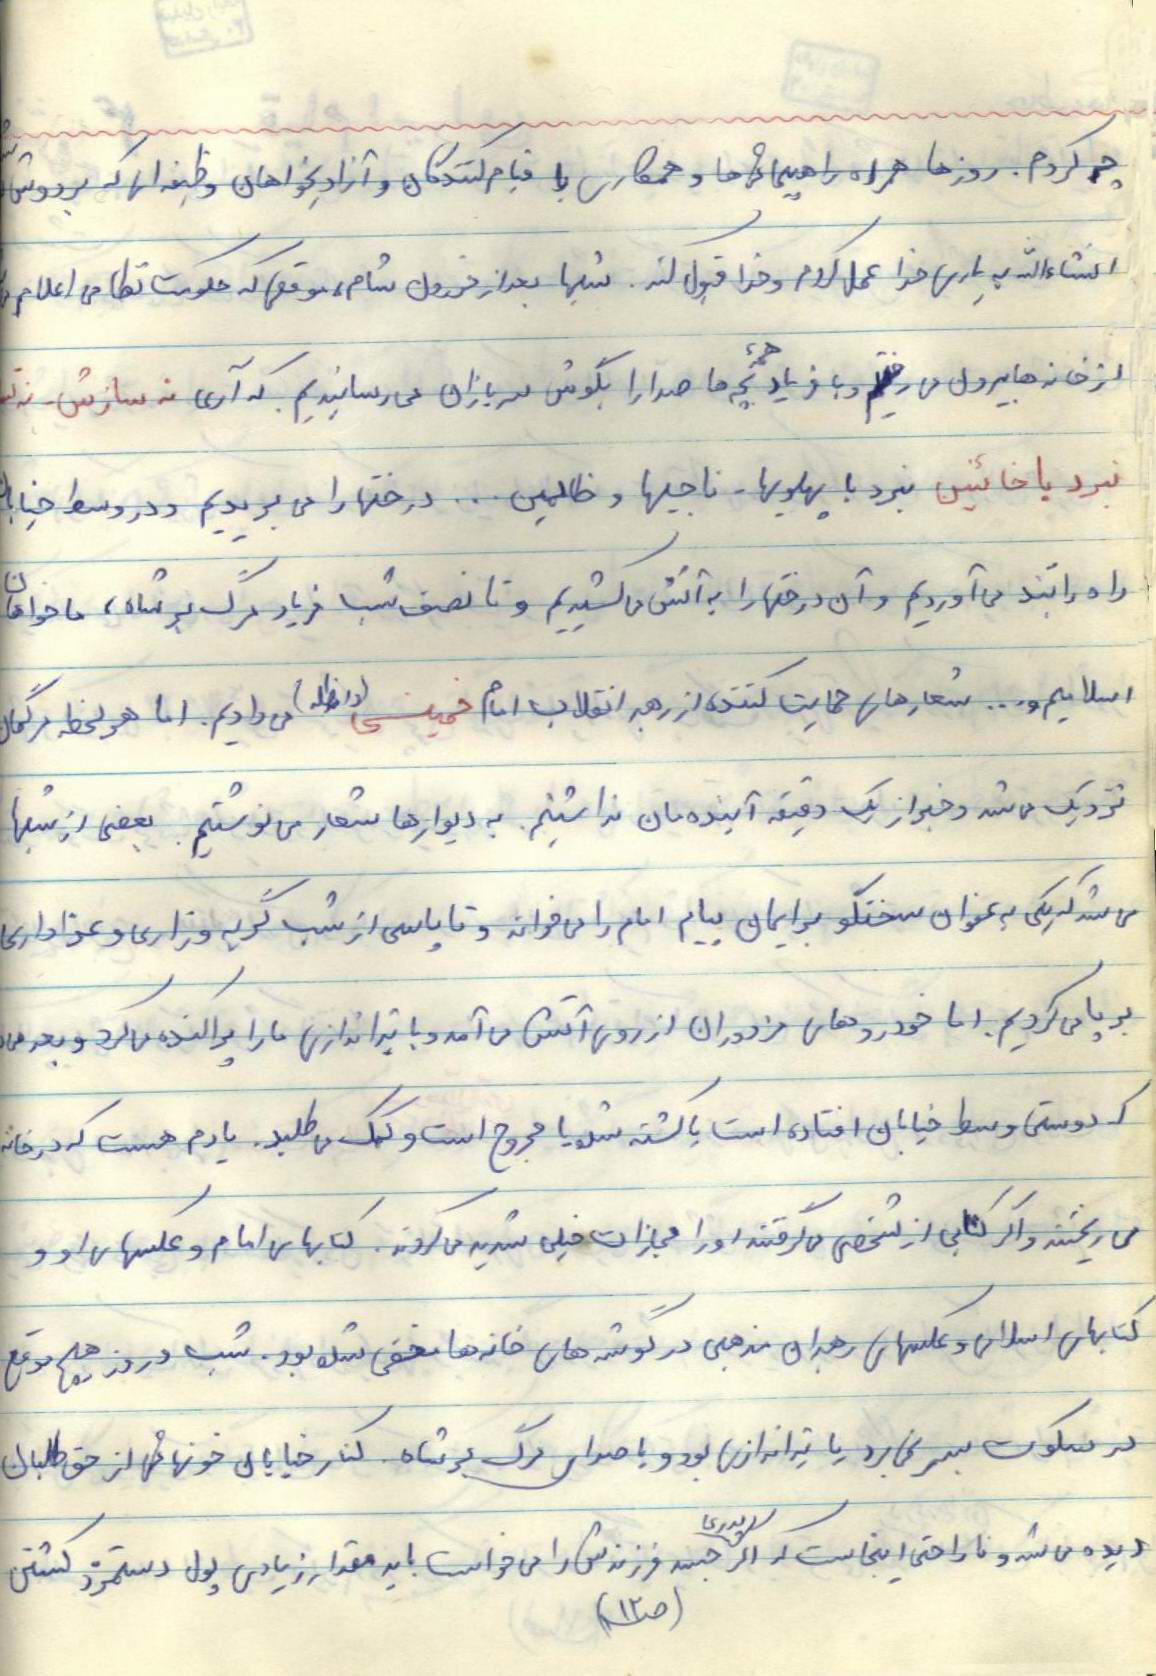 چه کردم. روزها همراه راهپیمائی‌ها و همکاری با قیام کنندگان و آزادیخواهان وظیفه‌ای که بر دوش
انشاءالله به یاری خدا عمل کردم و خدا قبول کند. شبها بعد از خوردن شام، موقعی که حکومت نظامی اعلام
از خانه‌ها بیرون می‌رفتیم و با فریاد همه بچه‌ها صدا را بگوش سربازان می‌رساندیم که آری نه سازش - نه
نبرد با خائنین نبرد با پهلویها - ناجیها و ظالمین ... درختها را می‌بریدیم و در وسط
راه را بند می‌آوردیم و آن درختها را به آتش می‌کشیدیم و تا نصف شب فریاد مرگ بر شاه، ما خواهان
اسلامیم و... شعارهای حمایت کننده از رهبر انقلاب امام خمینی (مدظله) می‌دادیم. اما هر لحظه مرگمان
نزدیک می‌شد و خبر از یک دقیقه آینده‌مان نداشتیم. به دیوارها شعار می‌نوشتیم. بعضی از شبها
می‌شد که یکی به عنوان سخنگو برایمان پیام امام را می‌خواند و تا پاسی از شب گریه و زاری و عزاداری
بر پا می‌کردیم. اما خودروهای مزدوران از روی آتش می‌آمد و با تیراندازی ما را پراکنده می‌کرد و بعد
که دوستی وسط خیابان افتاده است یا کشته شده یا مجروح است و کمک می‌طلبد. یادم هست که در خانه
می‌ریختند و اگر کتابی از شخصی می‌گرفتند او را مجازات خیلی شدید می‌کردند. کتابهای امام و عکسهای او و
کتابهای اسلامی و عکسهای رهبران مذهبی در گوشه‌های خانه‌ها مخفی شده بود. شب و روز هیچ موقع
در سکوت بسر نمی‌برد یا تیراندازی بود و یا صدای مرگ بر شاه. کنار خیابان خونهائی از حق طلبان
دیده می‌شد و ناراحتی اینجاست که اگر پدری جسد فرزندش را می‌خواست باید مقدار زیادی پول دستمزد کشتن
(ص۱۲)